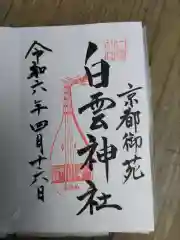 京都御苑
白雲神社
令和六年四月十六日